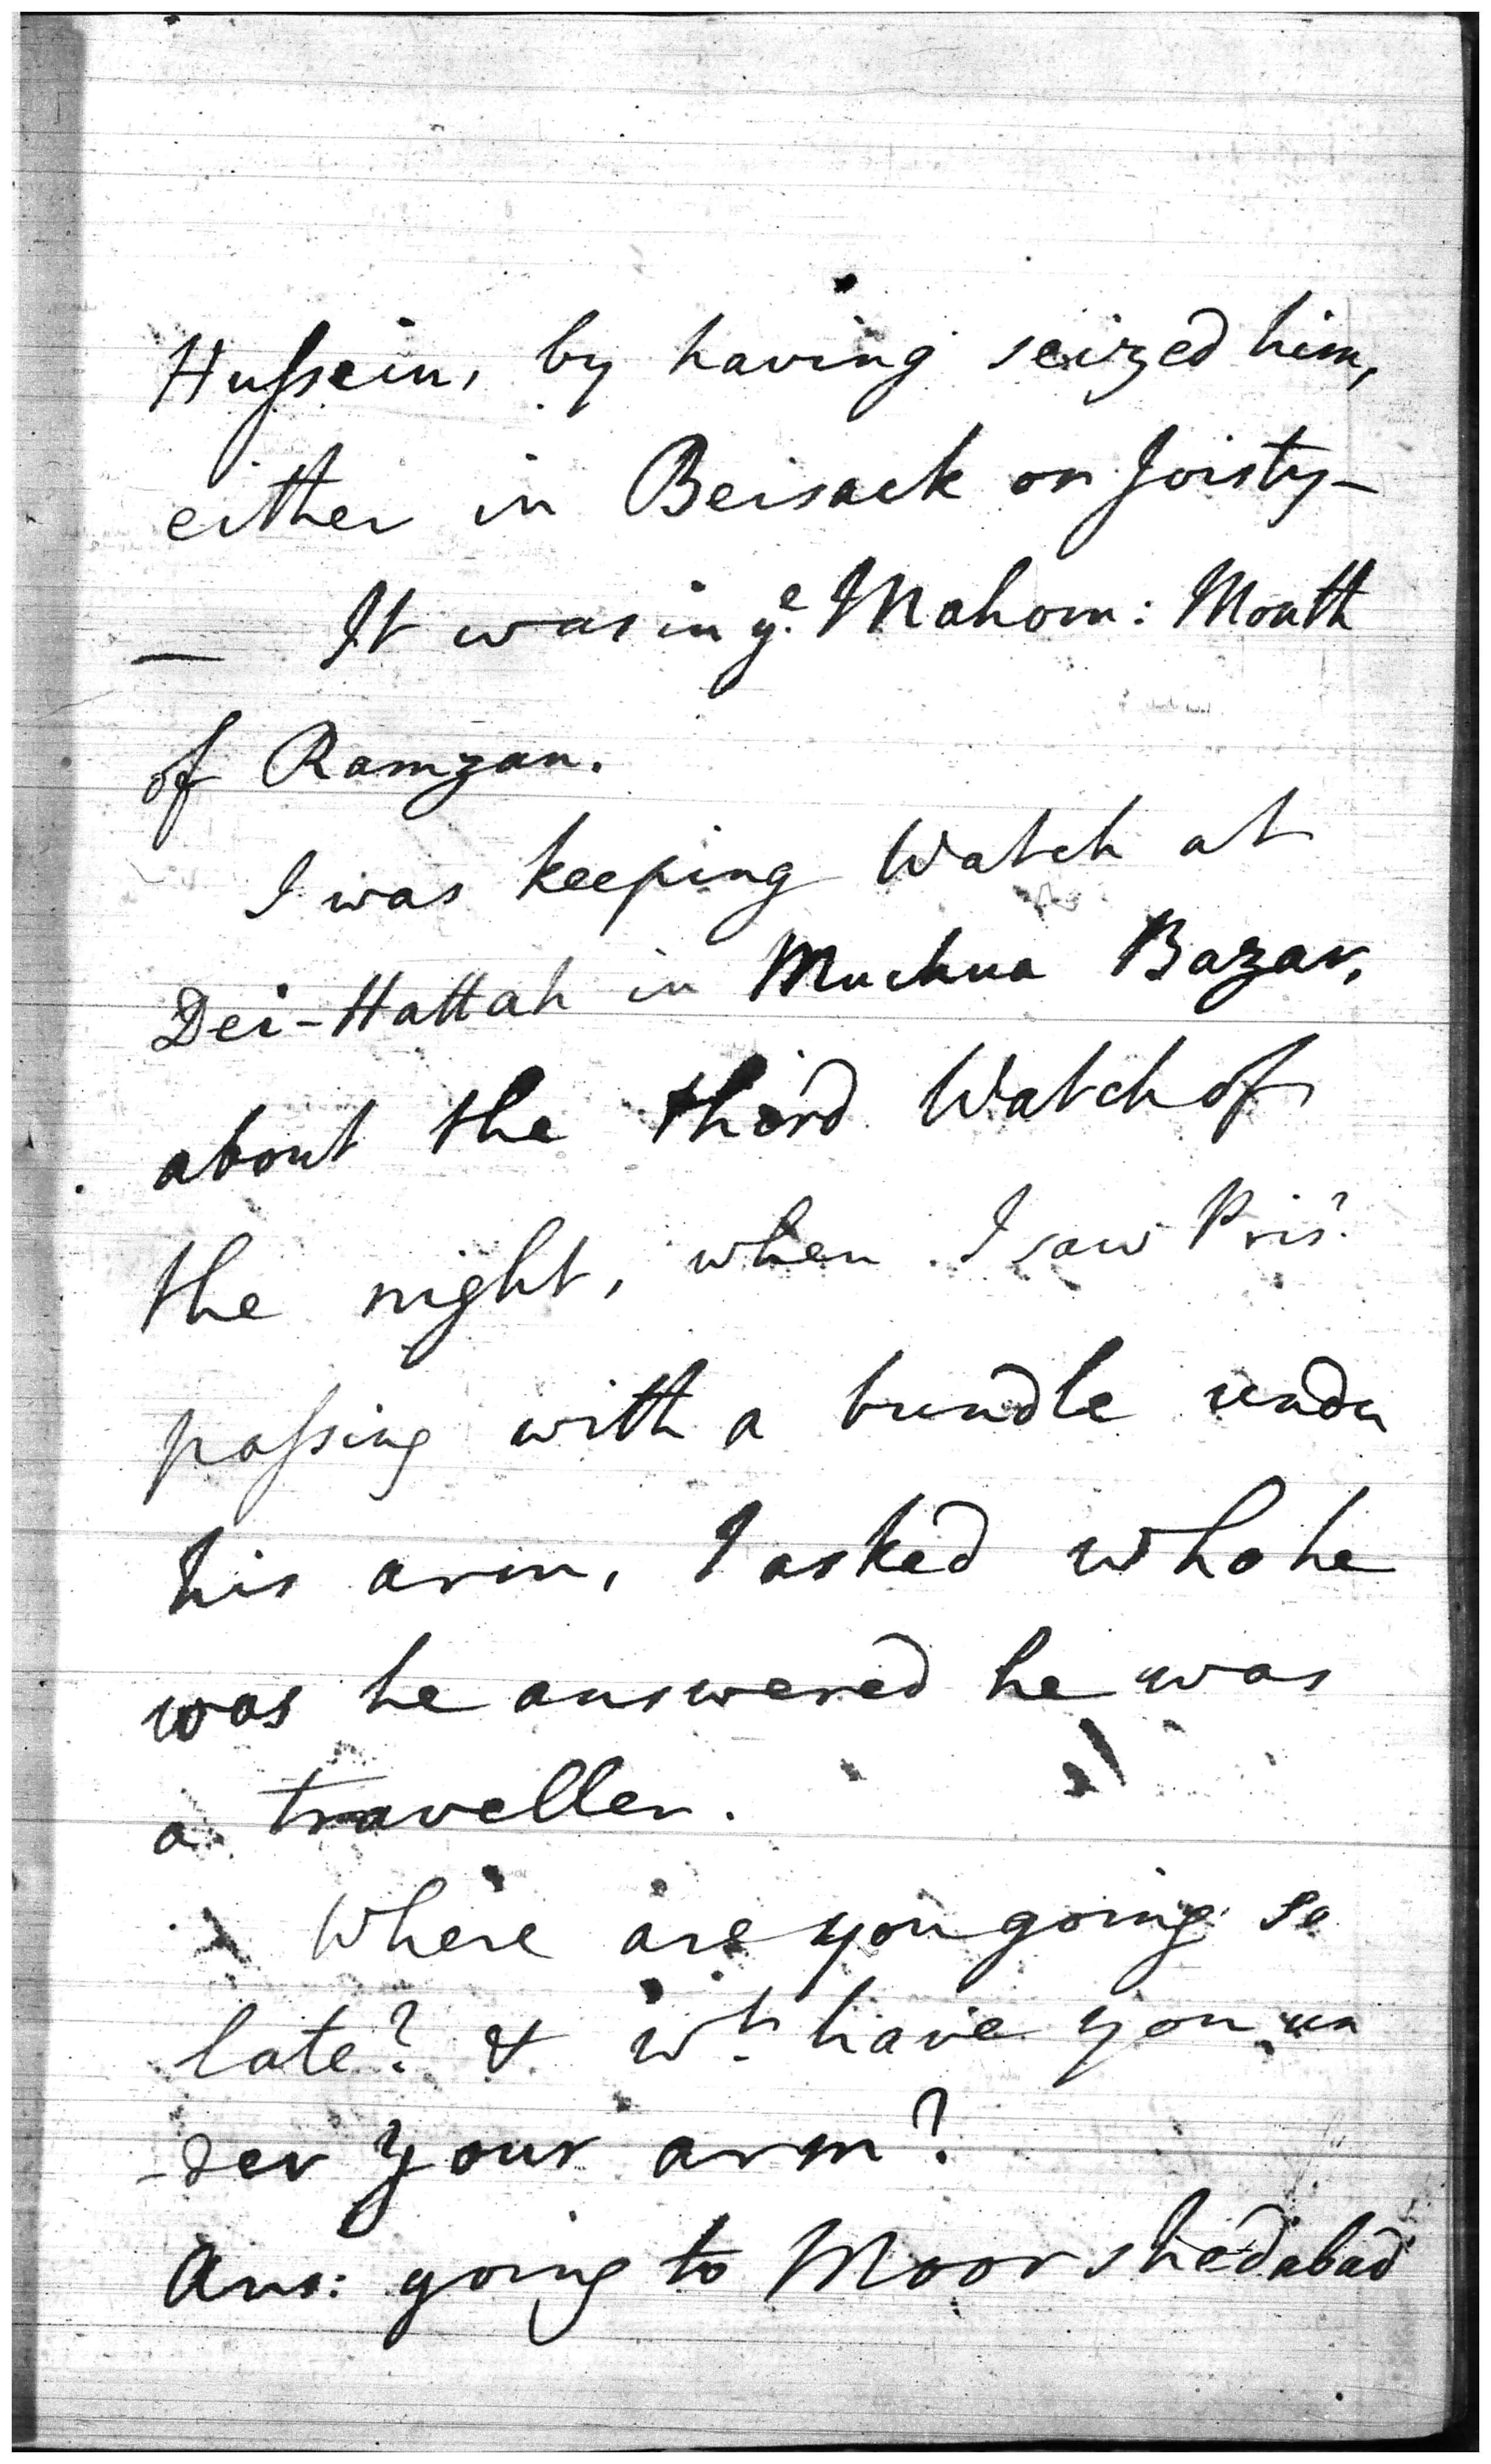 Hussein, by having seized him,
either in Beisack or Joisty-
— It was in yᵉ. Mahom: Month
of Ramzan.
I was keeping Watch at
Dei-Hattah in Muchua Bazar,
about the third Watch of
the night, when I saw Prisʳ.
passing with a bundle under
his arm, I asked who he
was he answered he was
a traveller.
Where are you going so
late? & wᵗ. have you un
-der your arm?
Ans: going to Moorshedabad